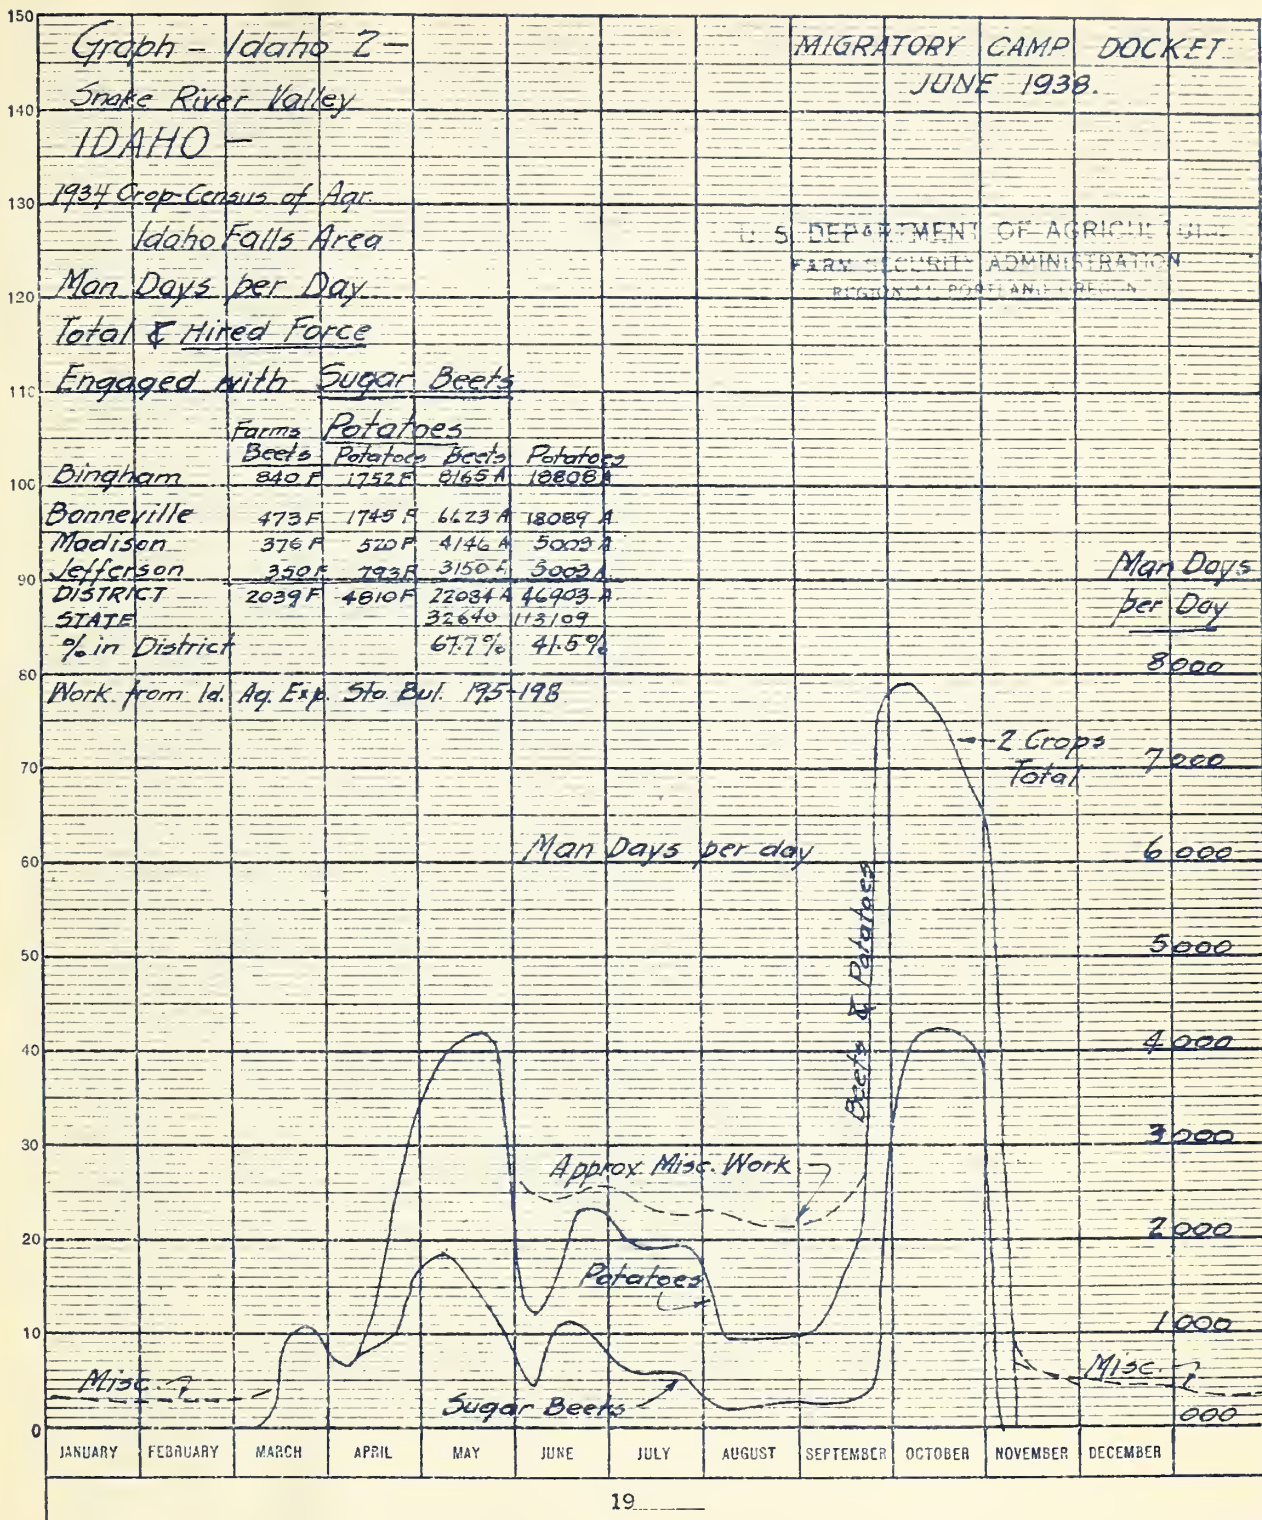 Graph - Idaho 2 -
Snake River Valley
IDAHO -
1934 Crop-Census of Agr.
Idaho Falls Area
Man Days per Day
Total & Hired Force
Engaged with Sugar Beets
Potatoes
MIGRATORY CAMP DOCKET
JUNE 1938.
U. S. DEPARTMENT OF AGRICULTURE
FARM SECURITY ADMINISTRATION
REGION PORTLAND OREGON
Farms
Beets Potatoes Beets Potatoes
Bingham 840 F 1752 F 8165 A 18808 A
Bonneville 473 F 1745 F 6623 A 18089 A
Madison 376 F 520 F 4146 A 5003 A
Jefferson 350 F 793 F 3150 A 5003 A
DISTRICT 2039 F 4810 F 22084 A 46903 A
STATE 32640 113109
% in District 67.7% 41.5%
Work from Id. Ag. Exp. Sta. Bul. 195-198
150
140
130
120
110
100
90
80
70
60
50
40
30
20
10
0
Man Days
per Day
8000
7000
6000
5000
4000
3000
2000
1000
000
2 Crops
Total
Man Days per day
Beets & Potatoes
Approx. Misc. Work
Potatoes
Sugar Beets
Misc. ?
Misc. ?
JANUARY FEBRUARY MARCH APRIL MAY JUNE JULY AUGUST SEPTEMBER OCTOBER NOVEMBER DECEMBER
19